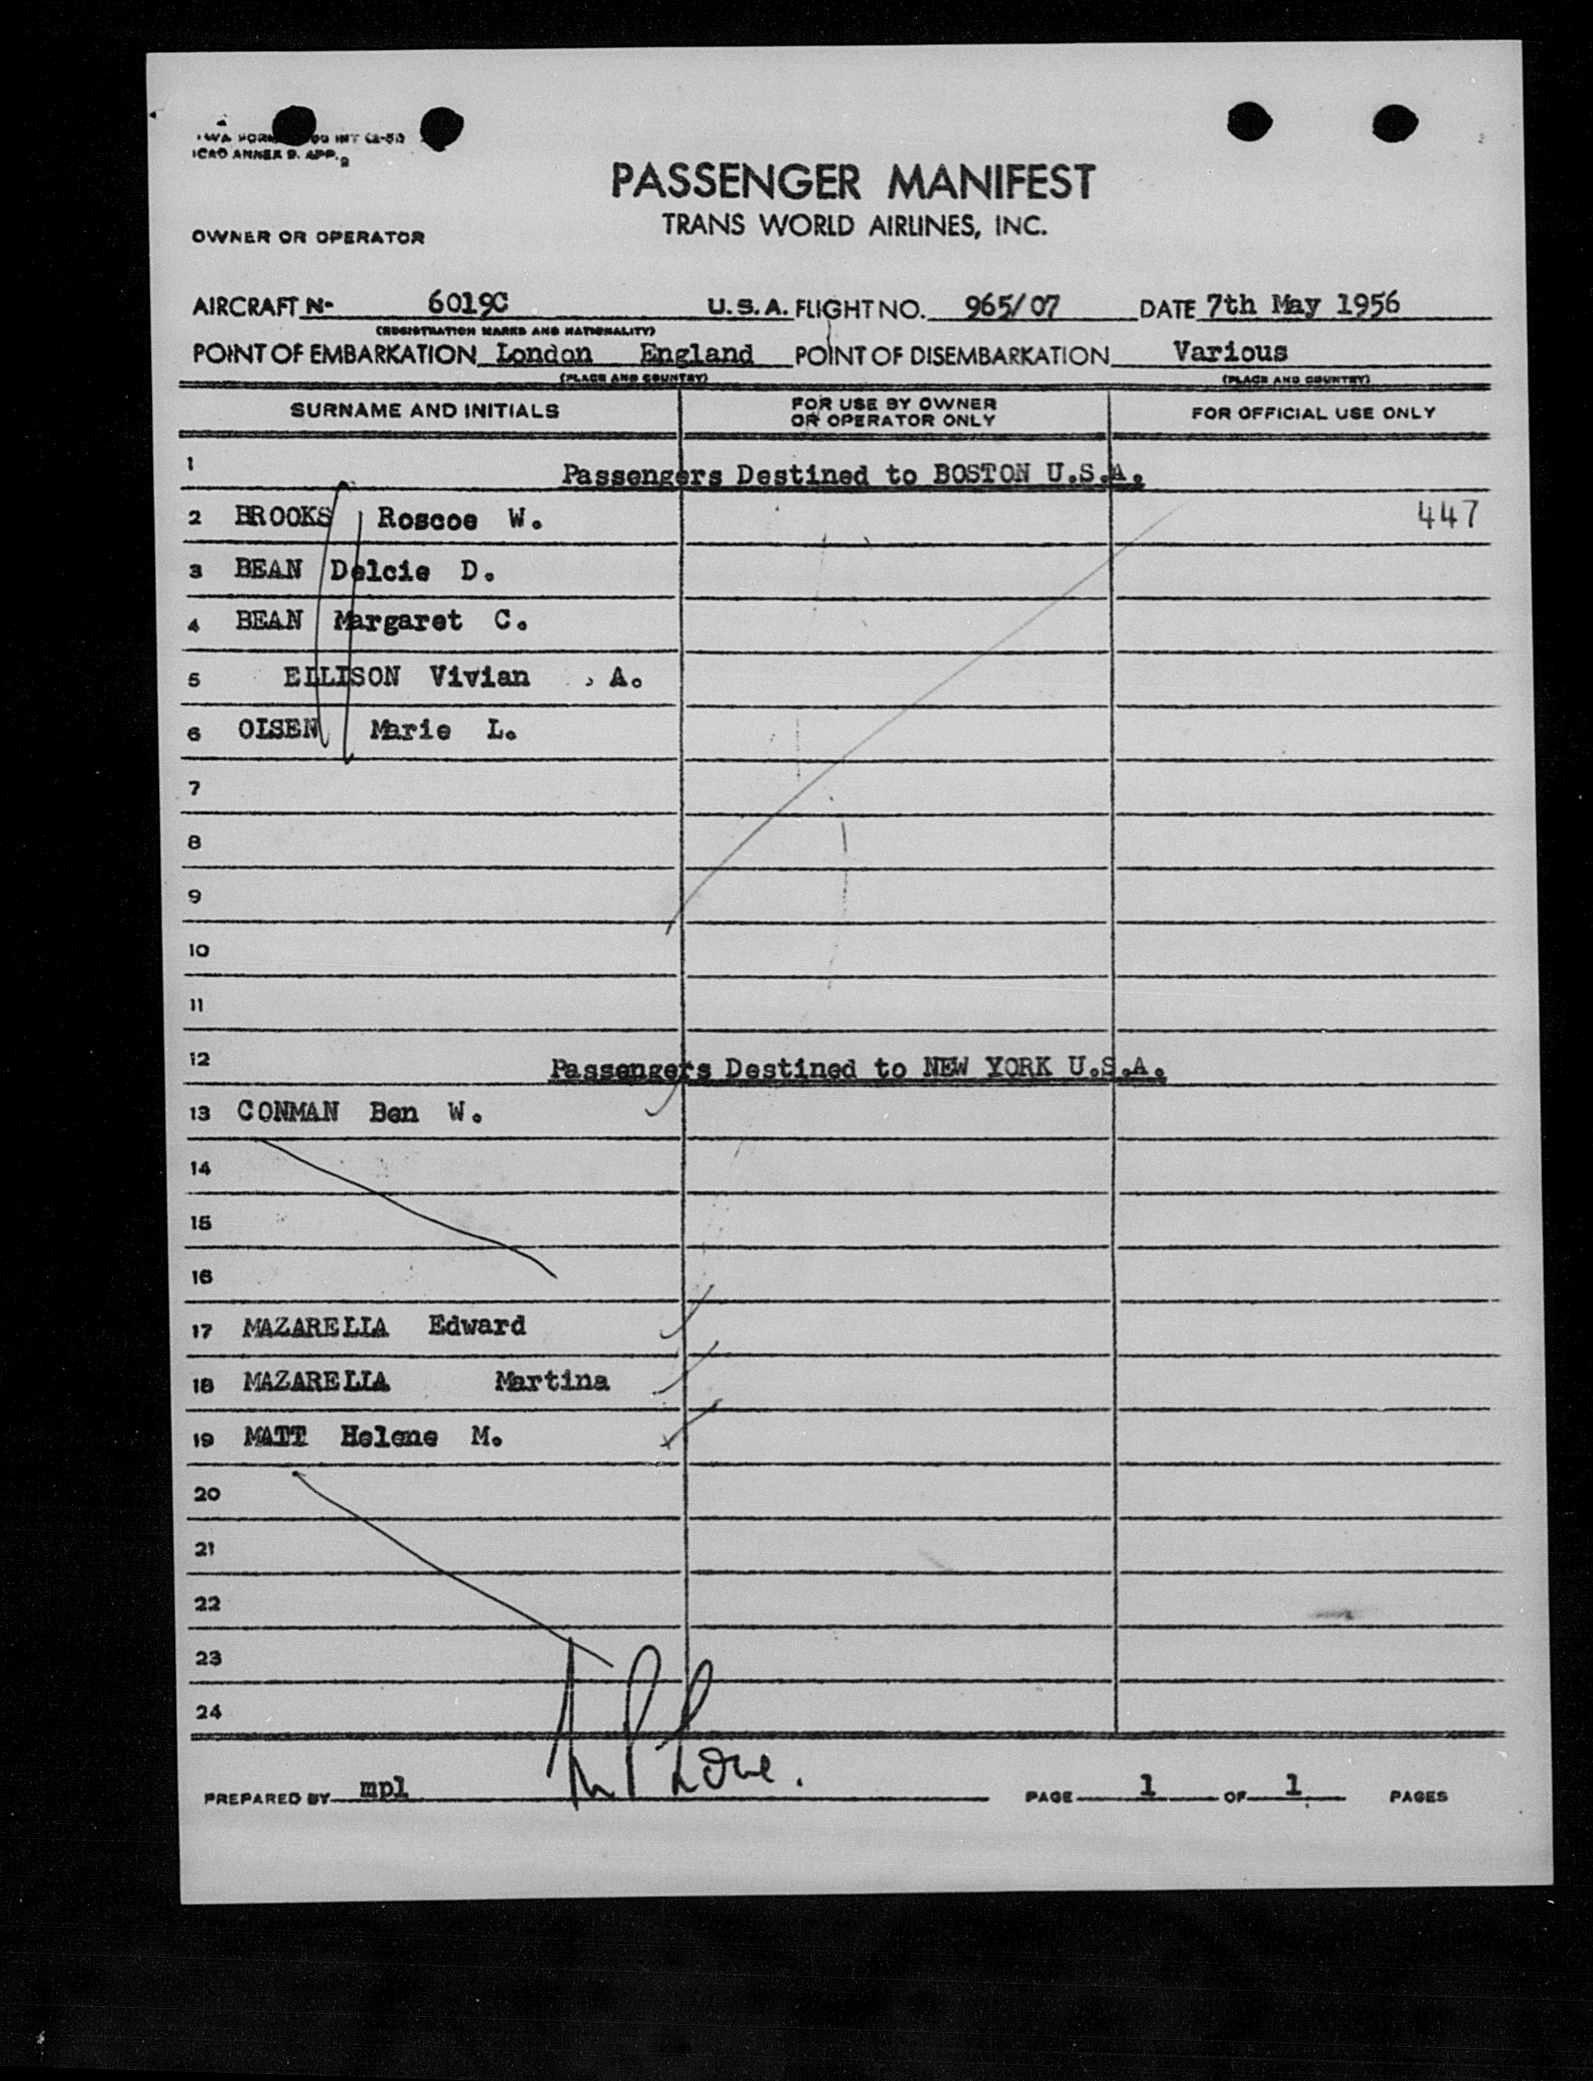 ICAO ANNEX 9. APP. 2
PASSENGER MANIFEST
TRANS WORLD AIRLINES, INC.
OWNER OR OPERATOR
AIRCRAFT N- 6019C U.S.A. FLIGHT NO. 965/07 DATE 7th May 1956
(REGISTRATION MARKS AND NATIONALITY)
POINT OF EMBARKATION London England POINT OF DISEMBARKATION Various
(PLACE AND COUNTRY) (PLACE AND COUNTRY)
SURNAME AND INITIALS FOR USE BY OWNER OR OPERATOR ONLY FOR OFFICIAL USE ONLY
1 Passengers Destined to BOSTON U.S.A.
2 BROOKS Roscoe W. 447
3 BEAN Delcie D.
4 BEAN Margaret C.
5 ELLISON Vivian A.
6 OLSEN Marie L.
7
8
9
10
11
12 Passengers Destined to NEW YORK U.S.A.
13 CONMAN Ben W.
14
15
16
17 MAZARELLA Edward
18 MAZARELLA Martina
19 MATT Helene M.
20
21
22
23
24
PREPARED BY mpl PAGE 1 OF 1 PAGES